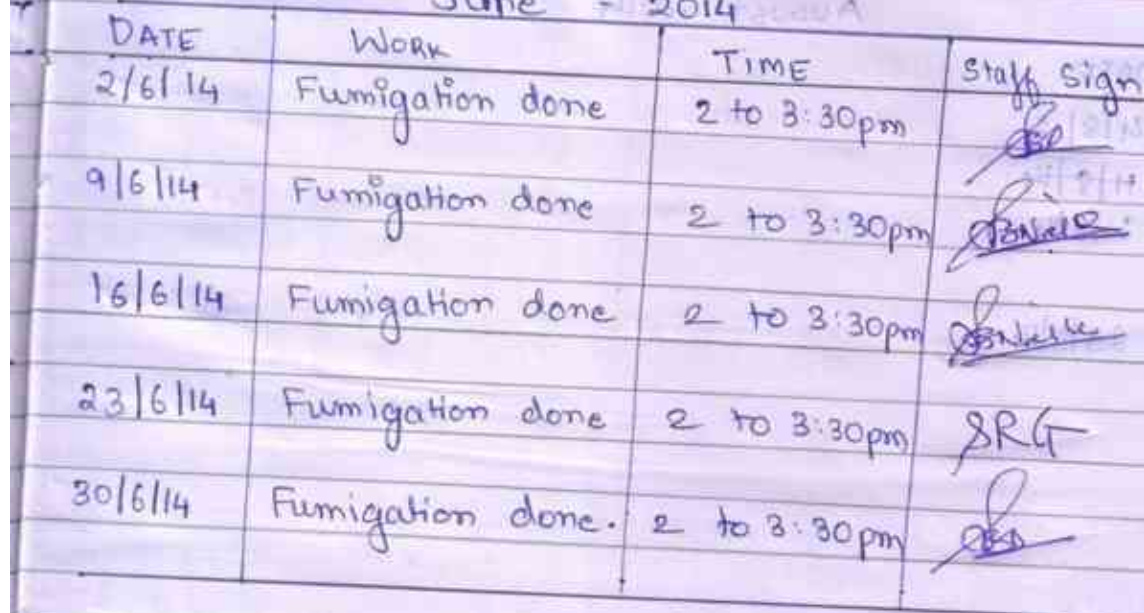 June - 2014
DATE WORK TIME Staff Sign
2/6/14 Fumigation done 2 to 3:30pm
9/6/14 Fumigation done 2 to 3:30pm
16/6/14 Fumigation done 2 to 3:30pm
23/6/14 Fumigation done 2 to 3:30pm SRG
30/6/14 Fumigation done. 2 to 3:30pm